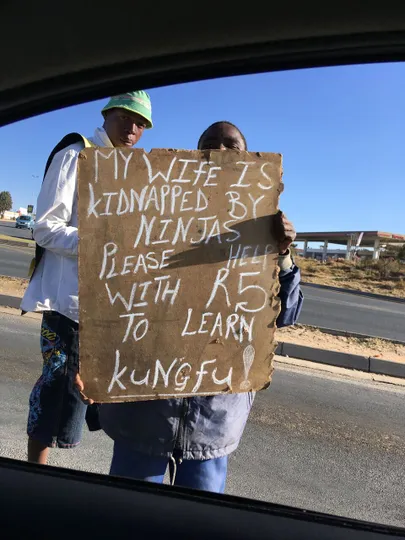 MY WIFE IS
KIDNAPPED BY
NINJAS
PLEASE HELP
WITH R5
TO LEARN
KUNGFU!